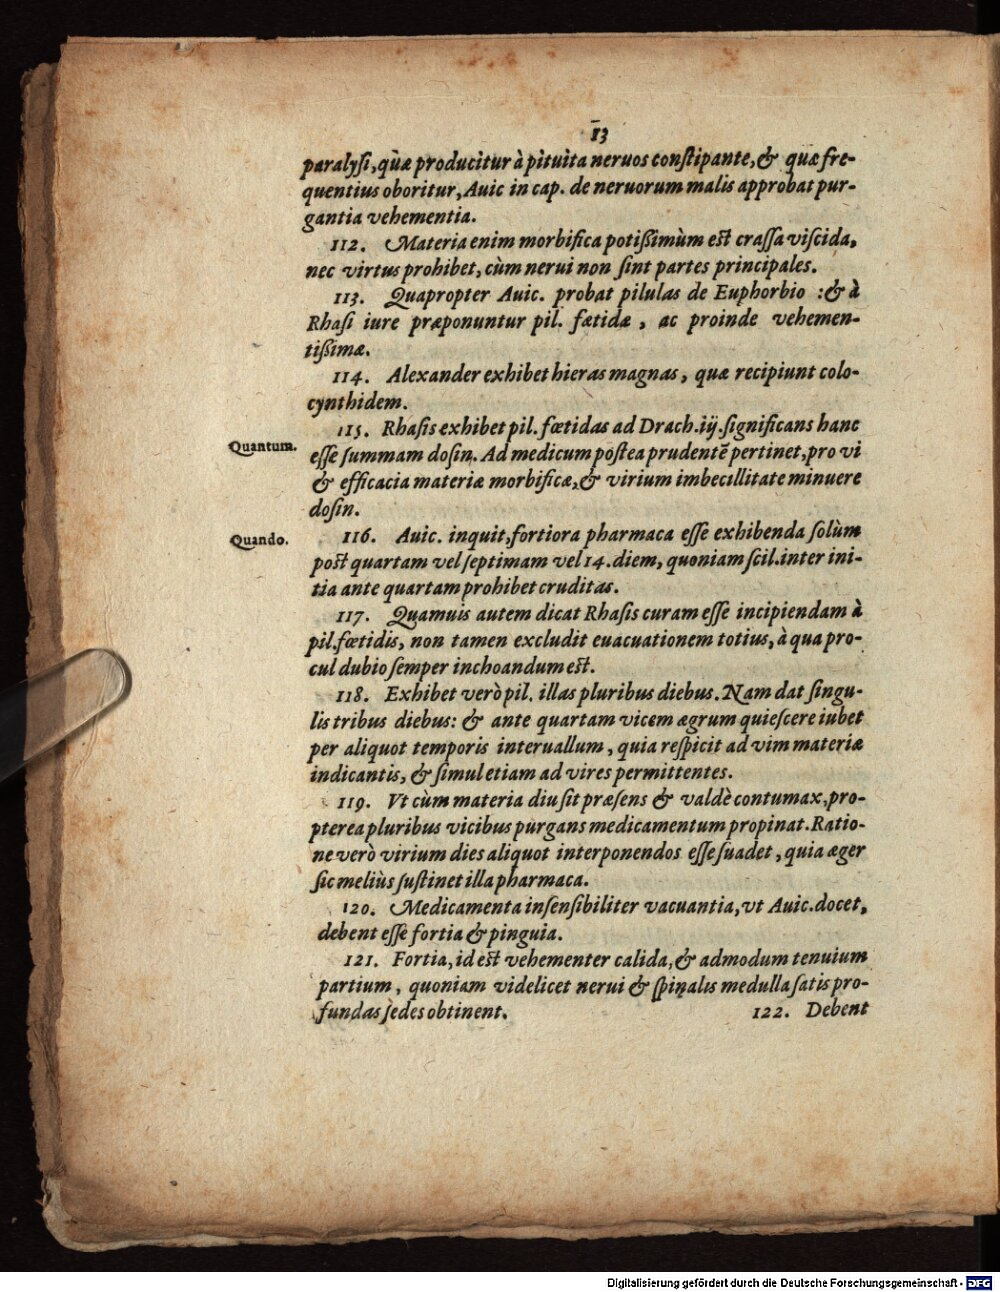 13
paralysi, quæ producitur à pituita neruos constipante, & quæ fre-
quentius oboritur, Auic in cap. de neruorum malis approbat pur-
gantia vehementia.
112. Materia enim morbifica potißimùm est crassa viscida,
nec virtus prohibet, cùm nerui non sint partes principales.
113. Quapropter Auic. probat pilulas de Euphorbio : & à
Rhasi iure præponuntur pil. fætidæ, ac proinde vehemen-
tißimæ.
114. Alexander exhibet hieras magnas, quæ recipiunt colo-
cynthidem.
115. Rhasis exhibet pil. fœtidas ad Drach. iij. significans hanc
Quantum.
esse summam dosin. Ad medicum postea prudentē pertinet, pro vi
& efficacia materiæ morbificæ, & virium imbecillitate minuere
dosin.
Quando.
116. Auic. inquit, fortiora pharmaca esse exhibenda solùm
post quartam vel septimam vel 14. diem, quoniam scil. inter ini-
tia ante quartam prohibet cruditas.
117. Quamuis autem dicat Rhasis curam esse incipiendam à
pil. fœtidis, non tamen excludit euacuationem totius, à qua pro-
cul dubio semper inchoandum est.
118. Exhibet verò pil. illas pluribus diebus. Nam dat singu-
lis tribus diebus: & ante quartam vicem ægrum quiescere iubet
per aliquot temporis interuallum, quia respicit ad vim materiæ
indicantis, & simul etiam ad vires permittentes.
119. Vt cùm materia diu sit præsens & valdè contumax, pro-
pterea pluribus vicibus purgans medicamentum propinat. Ratio-
ne verò virium dies aliquot interponendos esse suadet, quia æger
sic meliùs sustinet illa pharmaca.
120. Medicamenta insensibiliter vacuantia, vt Auic. docet,
debent esse fortia & pinguia.
121. Fortia, id est vehementer calida, & admodum tenuium
partium, quoniam videlicet nerui & spinalis medulla satis pro-
fundas sedes obtinent.
122. Debent
Digitalisierung gefördert durch die Deutsche Forschungsgemeinschaft - DFG